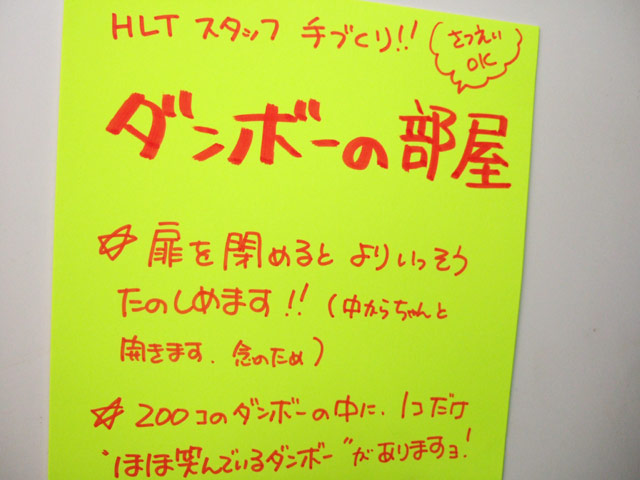 HLT スタッフ 手づくり!!
さつえい
OK
ダンボーの部屋
☆ 扉を閉めると よりいっそう
たのしめます!! (中からちゃんと
開きます. 念のため)
☆ 200コのダンボーの中に、1コだけ
"ほほ笑んでいるダンボー"がありますョ!